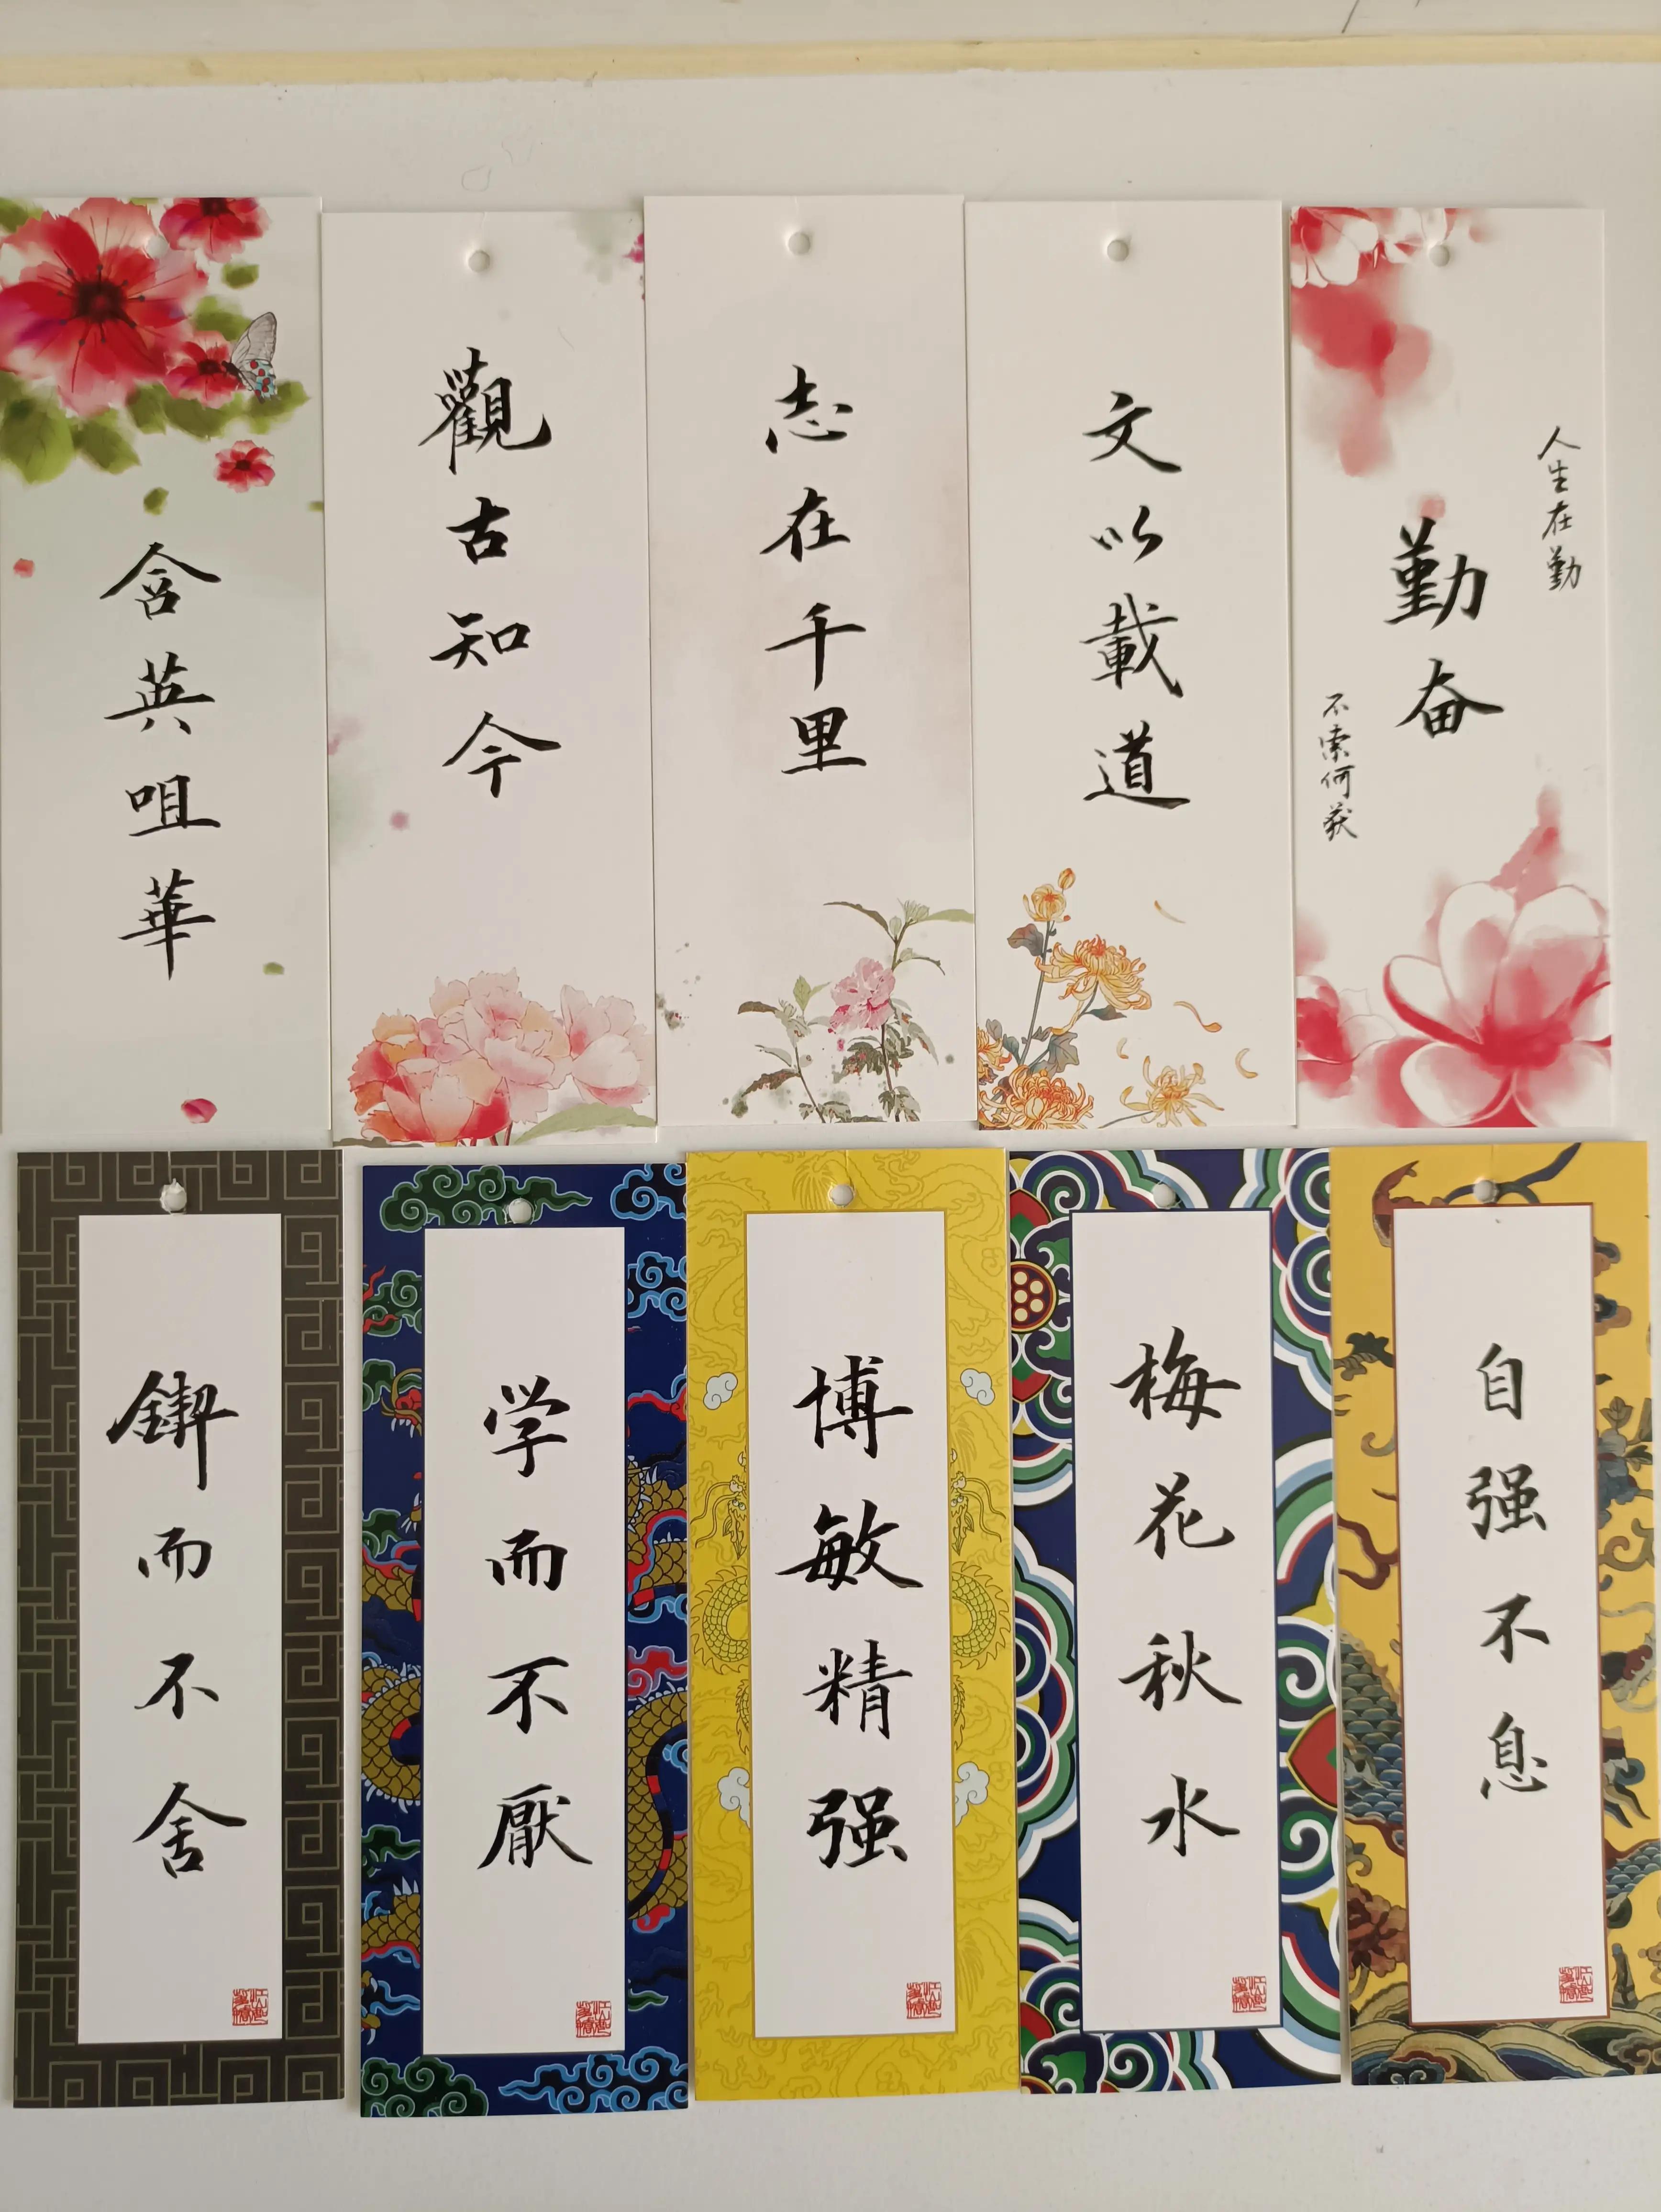 含英咀華
觀古知今
志在千里
文以載道
人生在勤
勤奋
不索何获
鍥而不舍
学而不厭
博敏精强
梅花秋水
自强不息